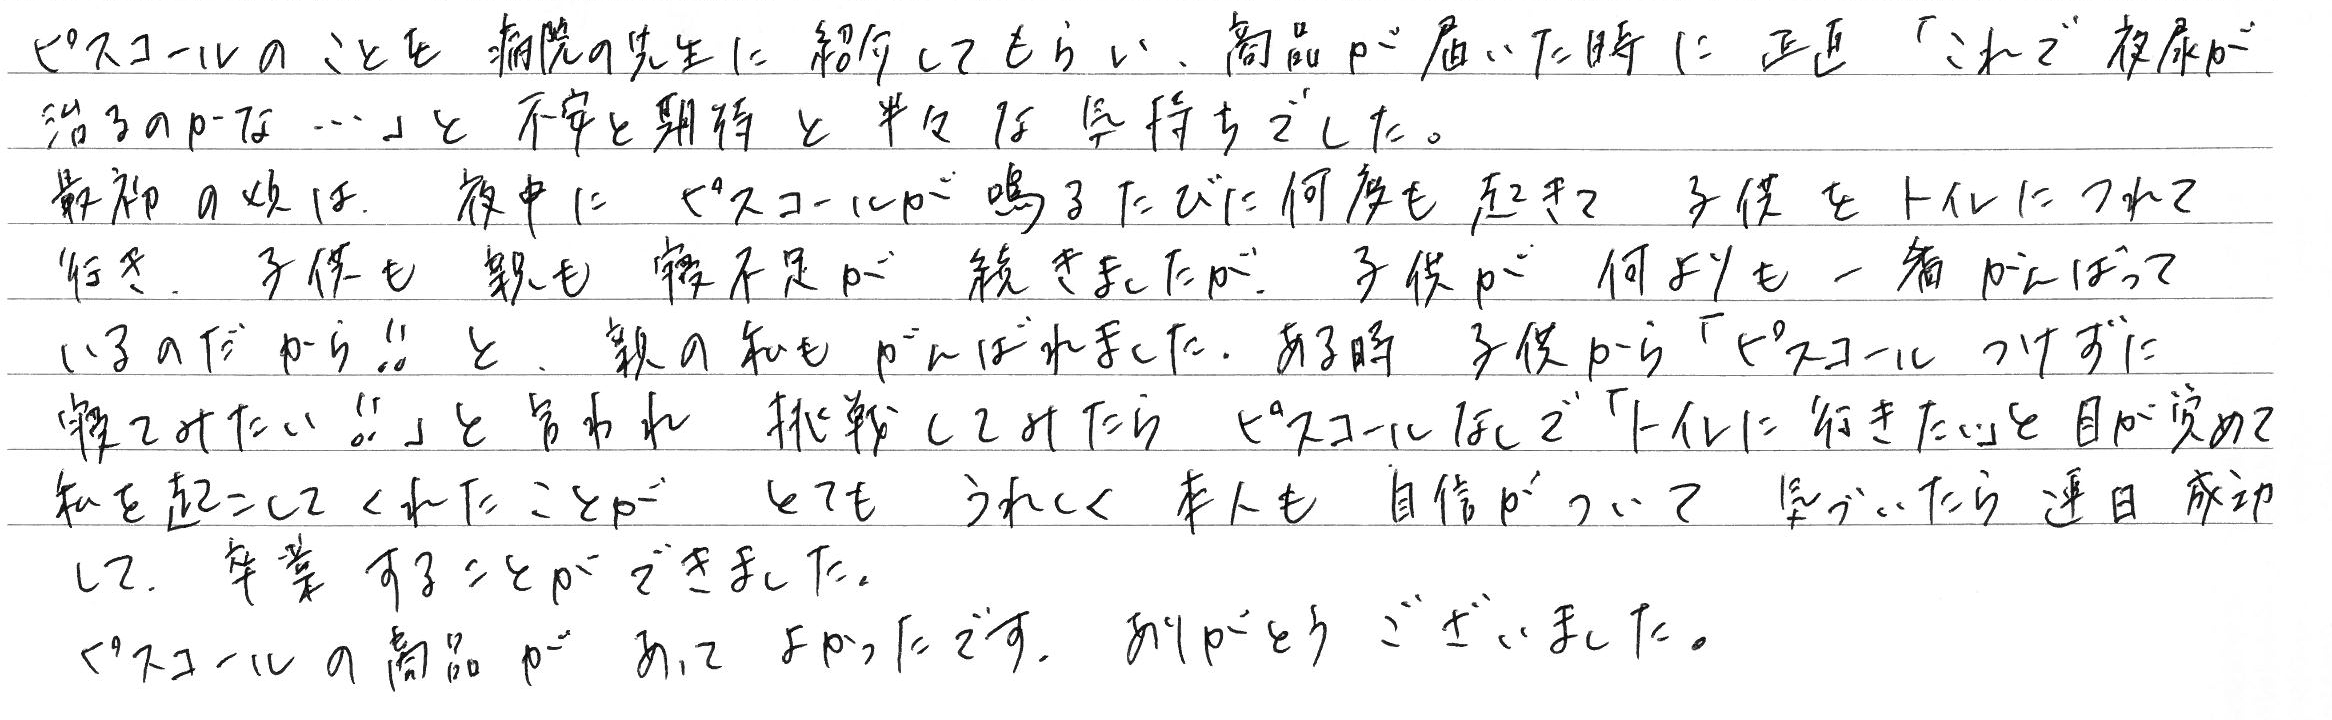 ピスコールのことを 病院の先生に 紹介してもらい、商品が届いた時に 正直 「これで夜尿が
治るのかな…」と 不安と期待と半々な気持ちでした。
最初の頃は、夜中に ピスコールが鳴るたびに何度も起きて 子供をトイレにつれて
行き、子供も 親も 寝不足が 続きましたが、子供が 何よりも一番がんばって
いるのだから!!と、親の私もがんばれました。ある時 子供から「ピスコールつけずに
寝てみたい!!」と言われ 挑戦してみたら ピスコールなしで「トイレに行きたい」と目が覚めて
私を起こしてくれたことが とても うれしく 本人も 自信がついて 気づいたら連日成功
して、卒業することができました。
ピスコールの商品が あって よかったです。ありがとうございました。